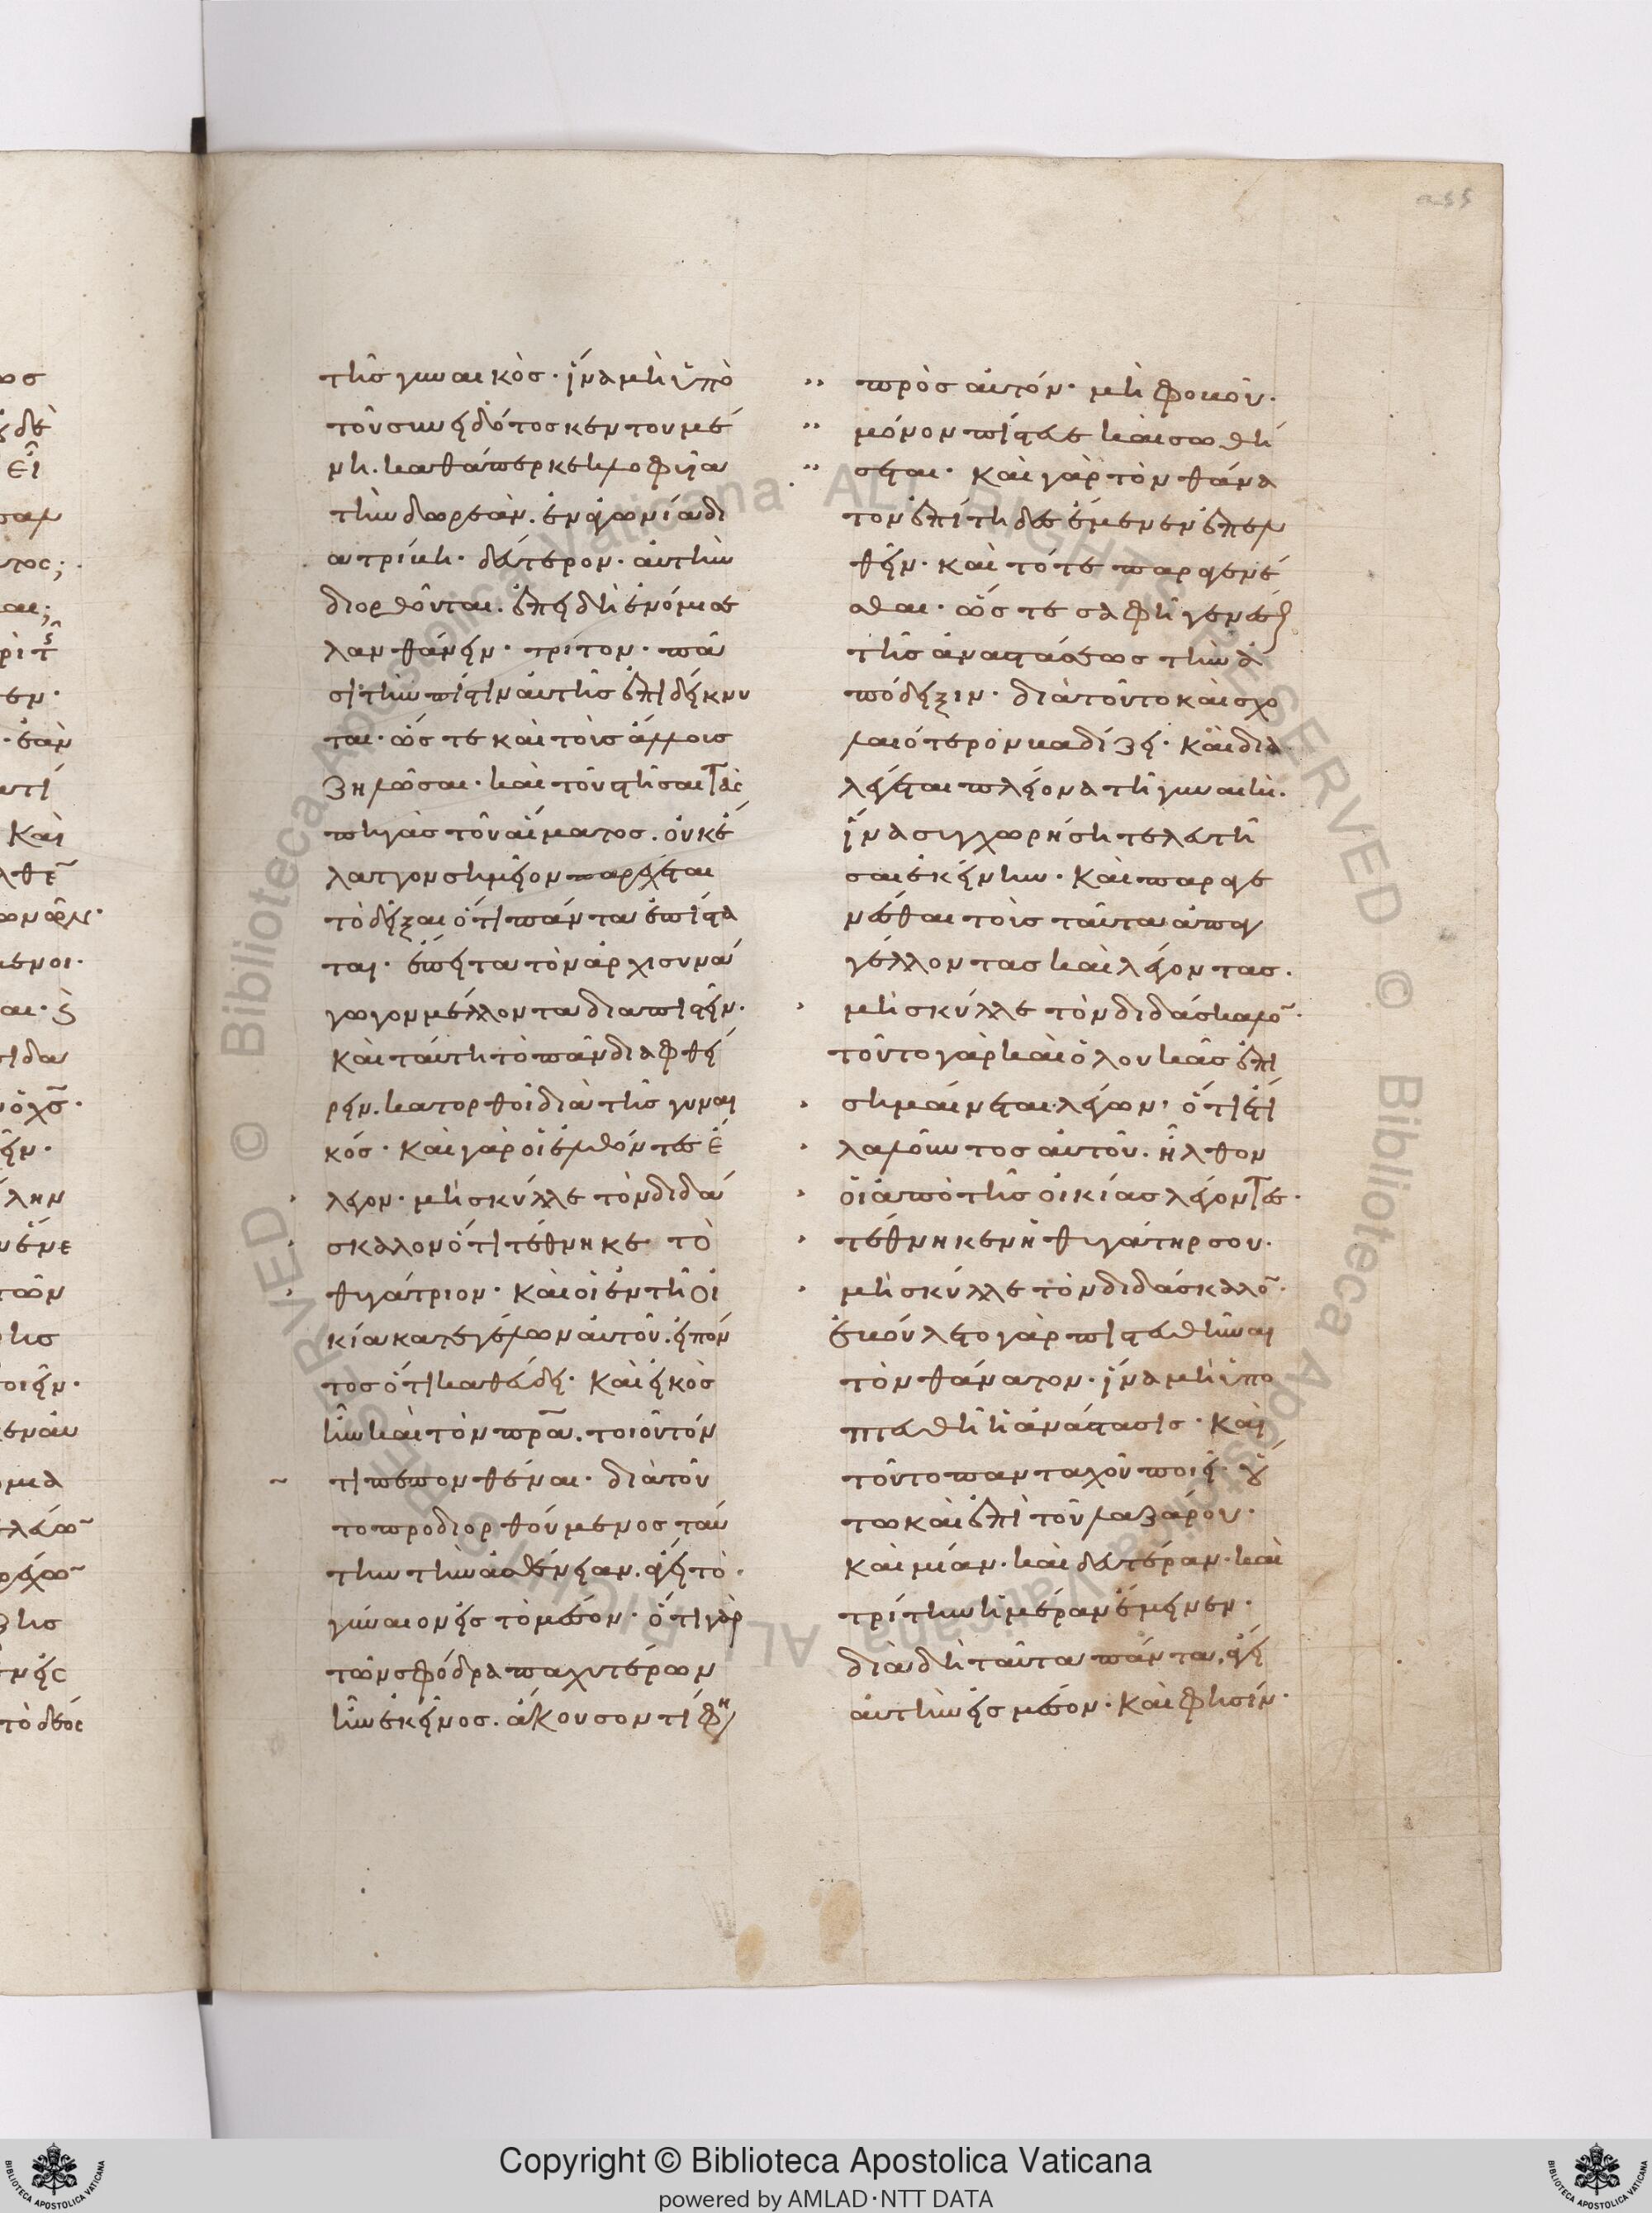 τῆς γυναικὸς· ἵνα μὴ ὑπὸ
τοῦ συνειδότος κεντουμέ
νη. καθάπερ κεκλοφυῖα
τὴν δωρεὰν. ἐν ἀγωνία δι
ατρίβη· δεύτερον· αὐτὴν
διορθοῦται. ἐπειδὴ ἐνόμισε
λανθάνειν· τρίτον· πᾶ
σι τὴν πίστιν αὐτῆς ἐπιδείκνυ
ται· ὥστε καὶ τοὺς ἄλλους
ζηλῶσαι· καὶ τοῦ στῆσαι τὰς
πηγὰς τοῦ αἵματος. οὐκ ἔ
λαττον σημεῖον παρέχεται
τὸ δεῖξαι ὅτι πάντα ἐπίστα
ται· ἔπειτα τὸν ἀρχισυνά
γωγον μέλλοντα διαπιστεῖν·
καὶ ταύτη τὸ πᾶν διαφθεί
ρειν. κατορθοῖ διὰ τῆς γυναι
κός· καὶ γὰρ οἱ ἐλθόντες ἔ
λεγον· μὴ σκύλλε τὸν διδά
σκαλον ὅτι τέθνηκε τὸ
θυγάτριον· καὶ οἱ ἐν τῆ οἰ
κία κατεγέλων αὐτοῦ. εἰπόν
τος ὅτι καθεύδει· καὶ εἰκὸς
ἦν καὶ τὸν πρ̅α. τοιοῦτόν
τι πεπονθέναι· διὰ τοῦ
το προδιορθούμενος ταύ
την τὴν ἀσθένειαν. ἄγει τὸ
γύναιον εἰς τὸ μέσον· ὅτι γὰρ
τῶν σφόδρα παχυτέρων
ἦν ἐκεῖνος. ἄκουσον τί φη
πρὸς αὐτόν· μὴ φοβοῦ·
μόνον πίστευε καὶ σωθή
σεται· καὶ γὰρ τὸν θάνα
τον ἐπίτηδες ἔμενεν ἐπελ
θεῖν· καὶ τότε παραγενέ
σθαι· ὥστε σαφῆ γενέσθαι
τῆς ἀναστάσεως τὴν ἀ
πόδειξιν· διὰ τοῦτο καὶ σχο
λαιότερον βαδίζει· καὶ δια
λέγεται πλείονα τῆ γυναικὶ·
ἵνα συγχωρήση τελευτῆ
σαι ἐκείνην· καὶ παραγε
νέσθαι τοὺς ταῦτα ἀπαγ
γέλλοντας καὶ λέγοντας·
μὴ σκύλλε τὸν διδάσκαλο̅·
τοῦτο γὰρ καὶ ὁ λουκᾶς ἐπι
σημαίνεται λέγων· ὅτι ἔτι
λαλοῦντος αὐτοῦ. ἦλθον
οἱ ἀπὸ τῆς οἰκίας λέγοντες·
τέθνηκεν ἡ θυγάτηρ σου·
μὴ σκύλλε τὸν διδάσκαλο̅·
ἐβούλετο γὰρ πιστευθῆναι
τὸν θάνατον· ἵνα μὴ ὑπο
πτευθῆ ἡ ἀνάστασις· καὶ
τοῦτο πανταχοῦ ποιεῖ· οὕ
τω καὶ ἐπὶ τοῦ λαζάρου·
καὶ μίαν· καὶ δευτέραν· καὶ
τρίτην ἡμέραν ἔμεινεν·
διὰ δὴ ταῦτα πάντα. ἄγει
αὐτὴν εἰς μέσον· καὶ φησίν·
Copyright © Biblioteca Apostolica Vaticana
powered by AMLAD·NTT DATA